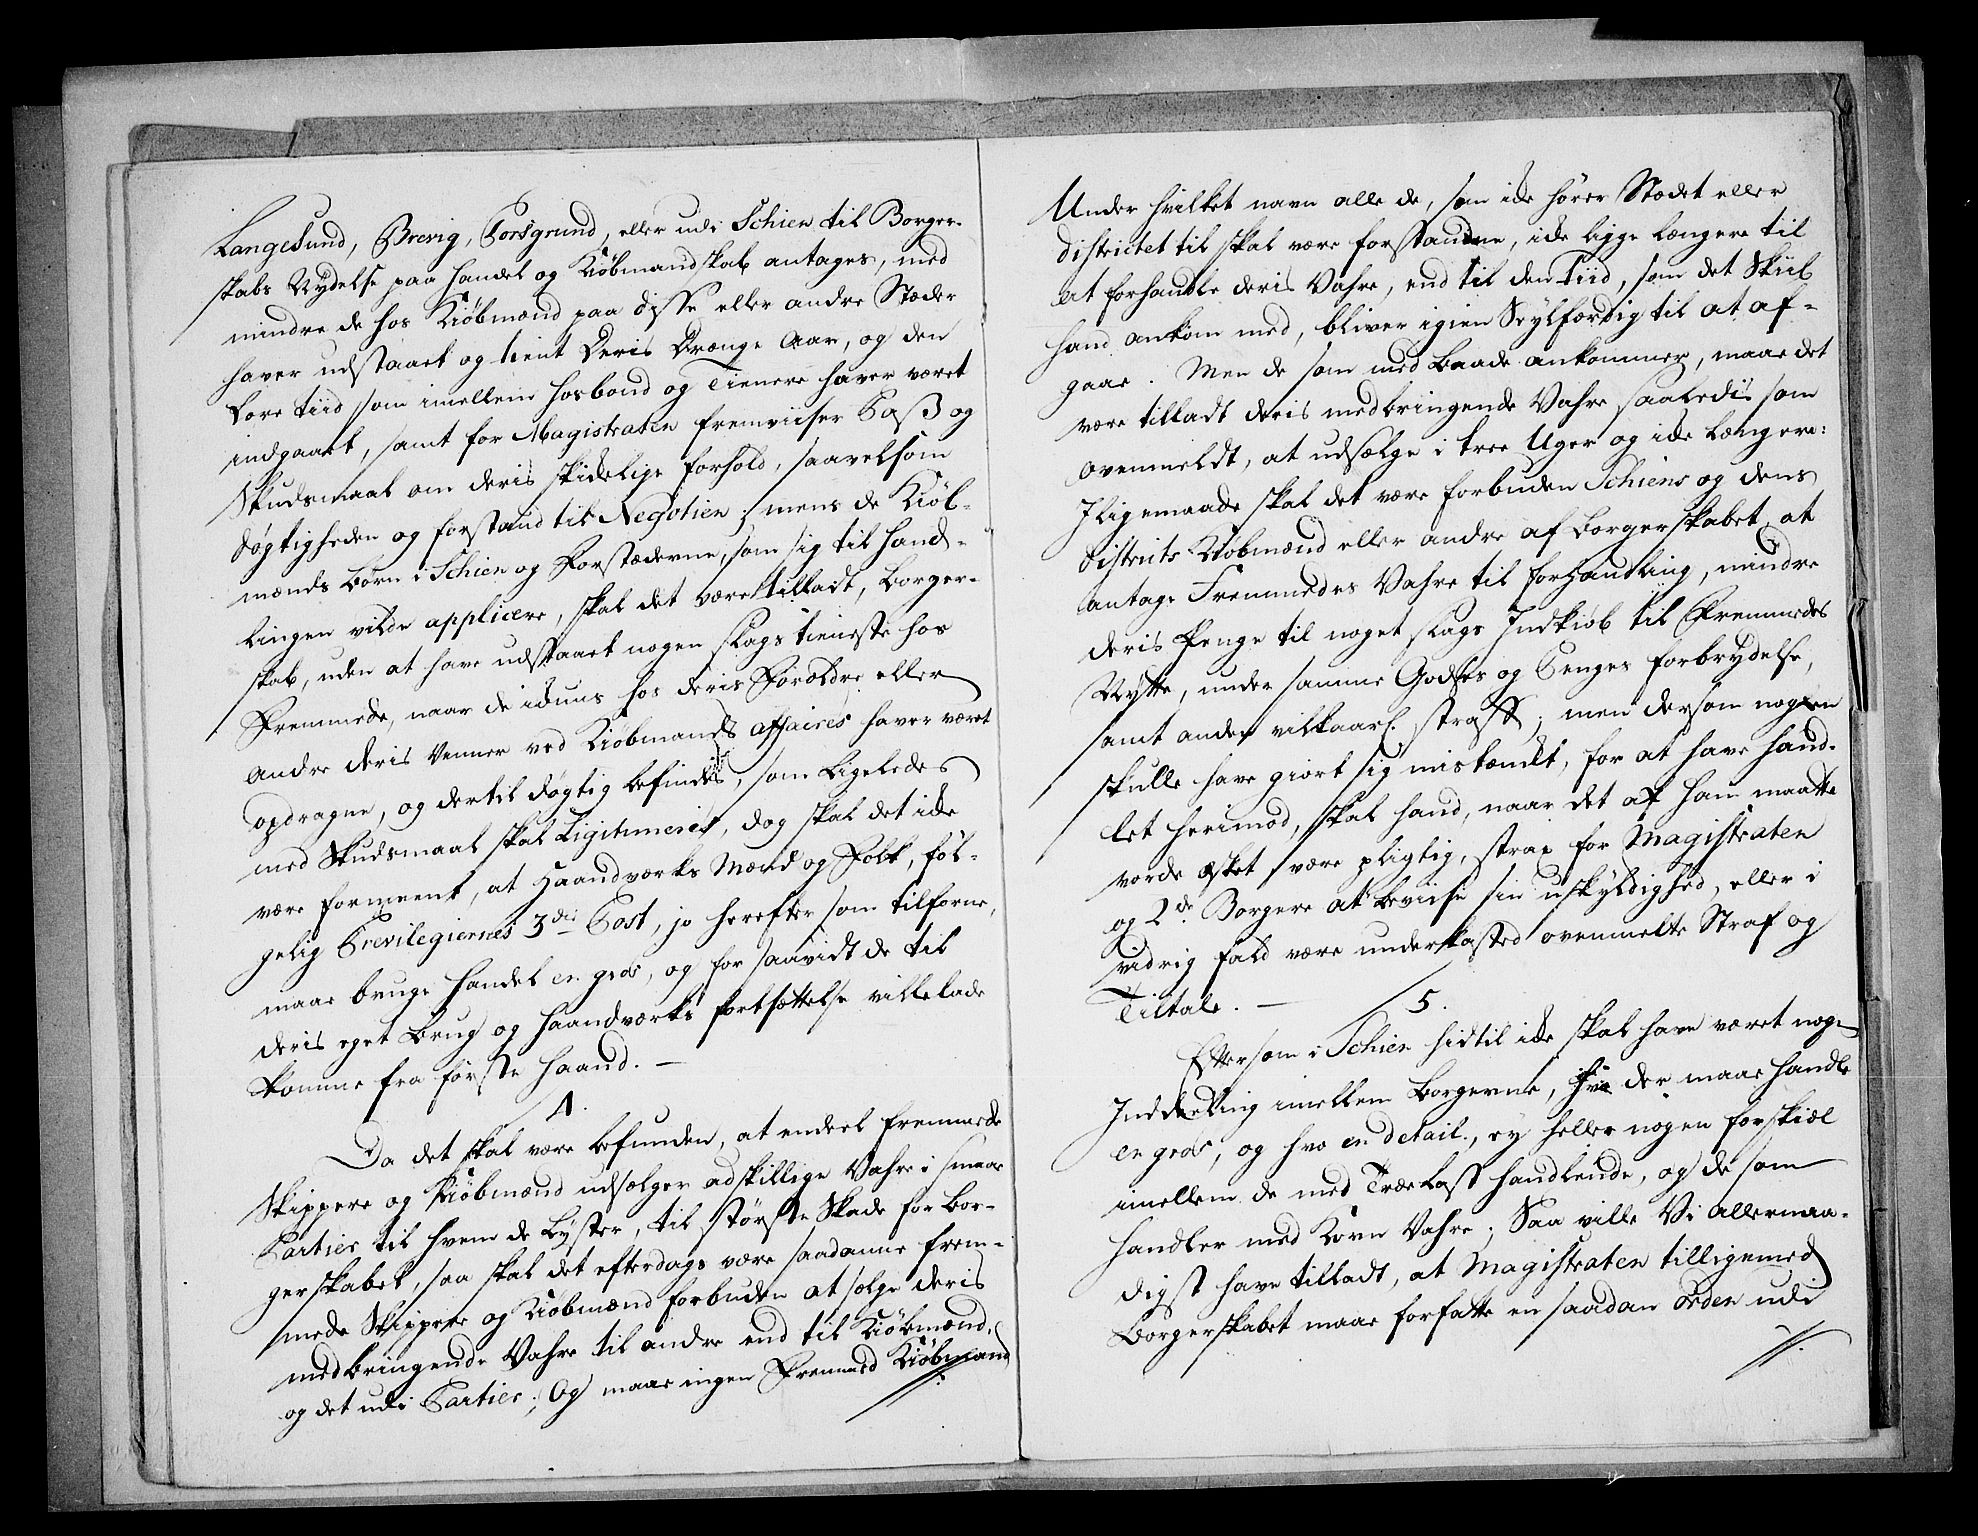 Langesund, Brevig, Porsgrund, eller udi Schien til Borger-
skabs Nydelse paa Handel og Kiøbmandskab antages, med
mindre de hos Kiøbmænd paa disse eller andre Stæder
haver udstaaet og tient deris Drænge Aar, og den
Lore tiid som imellem Hosbond og Tienere haver været
indgaaet, samt for Magistraten fremviiser Paß og
Skudsmaal om deris skickelige forhold, saavelsom
døgtigheden og forstand til Negotien; mens de Kiøb-
mænds Børn i Schien og Forstæderne, som sig til Hand-
lingen vilde applicere, skal det være tilladt, Borger-
skab, uden at have udstaaet nogen slags tieneste hos
Fremmede, naar de iduns hos deris Forældre eller
andre deris Venner ved Kiøbmands affaires haver været
opdragne, og dertil døgtig befindes, som Ligeledes
med Skudsmaal skal Ligitimeres, dog skal det icke
være formeent, at Haandværks Mænd og Folk, føl-
gelig Previlegiernes 3die Post, jo herefter som tilforne,
maae bruge Handel en gros, og for saavidt de til
deris eget Brug og Haandværks fortsættelse ville lade
komme fra første Haand. —
4.
Da det skal være befunden, at endeel fremmede
Skippere og Kiøbmænd udsælger adskillige Vahre i smaae
Partier til hvem de Lyster, til største Skade for Bor-
gerskabet, saa skal det efterdags være saadanne frem-
mede Skippere og Kiøbmænd forbuden at sælge deris
medbringende Vahre til andre end til Kiøbmænd,
og det udi Partier; Og maae ingen Fremmed Kiøbmand
Under hvilket navn alle de, som icke hører Stædet eller
Districtet til skal være forstandne, icke ligge længere til
at forhandle deris Vahre, end til den Tiid, som det Skiib
hand ankom med, bliver igien Seylfærdig til at af-
gaae. Men de som med Baade ankommer, maae det
være tilladt deris medbringende Vahre saaledis som
ovenmeldt, at udsælge i tree Uger og icke længere:
Jligemaade skal det være forbuden Schiens og dens
Districts Kiøbmænd eller andre af Borgerskabet at
antage Fremmedes Vahre til forhandling, mindre
deris Penge til noget slags Indkiøb til Fremmedes
Nytte, under samme Godses og Penges forbrydelse,
samt anden vilkaarl. straff; men dersom nogen
skulle have giort sig mistænkt, for at have hand-
let herimod, skal hand, naar det af ham maatte
vorde æsket være pligtig, strax for Magistraten
og 2de Borgere at beviise sin uskyldighed, eller i
vidrig fald være underkasted ovenmelte Straf og
Tiltale. —
5.
Efter som i Schien hidtil icke skal have været nogen
Inddeeling imellem Borgerne, hvo der maae handle
en gros, og hvo en detail, ey heller nogen forskiæl
imellem de med Træelast handlende, og de som
handler med Korn Vahre; Saa ville Vi allernaa-
digst have tilladt, at Magistraten tilligemed
Borgerskabet maae forfatte en saadan Orden udi